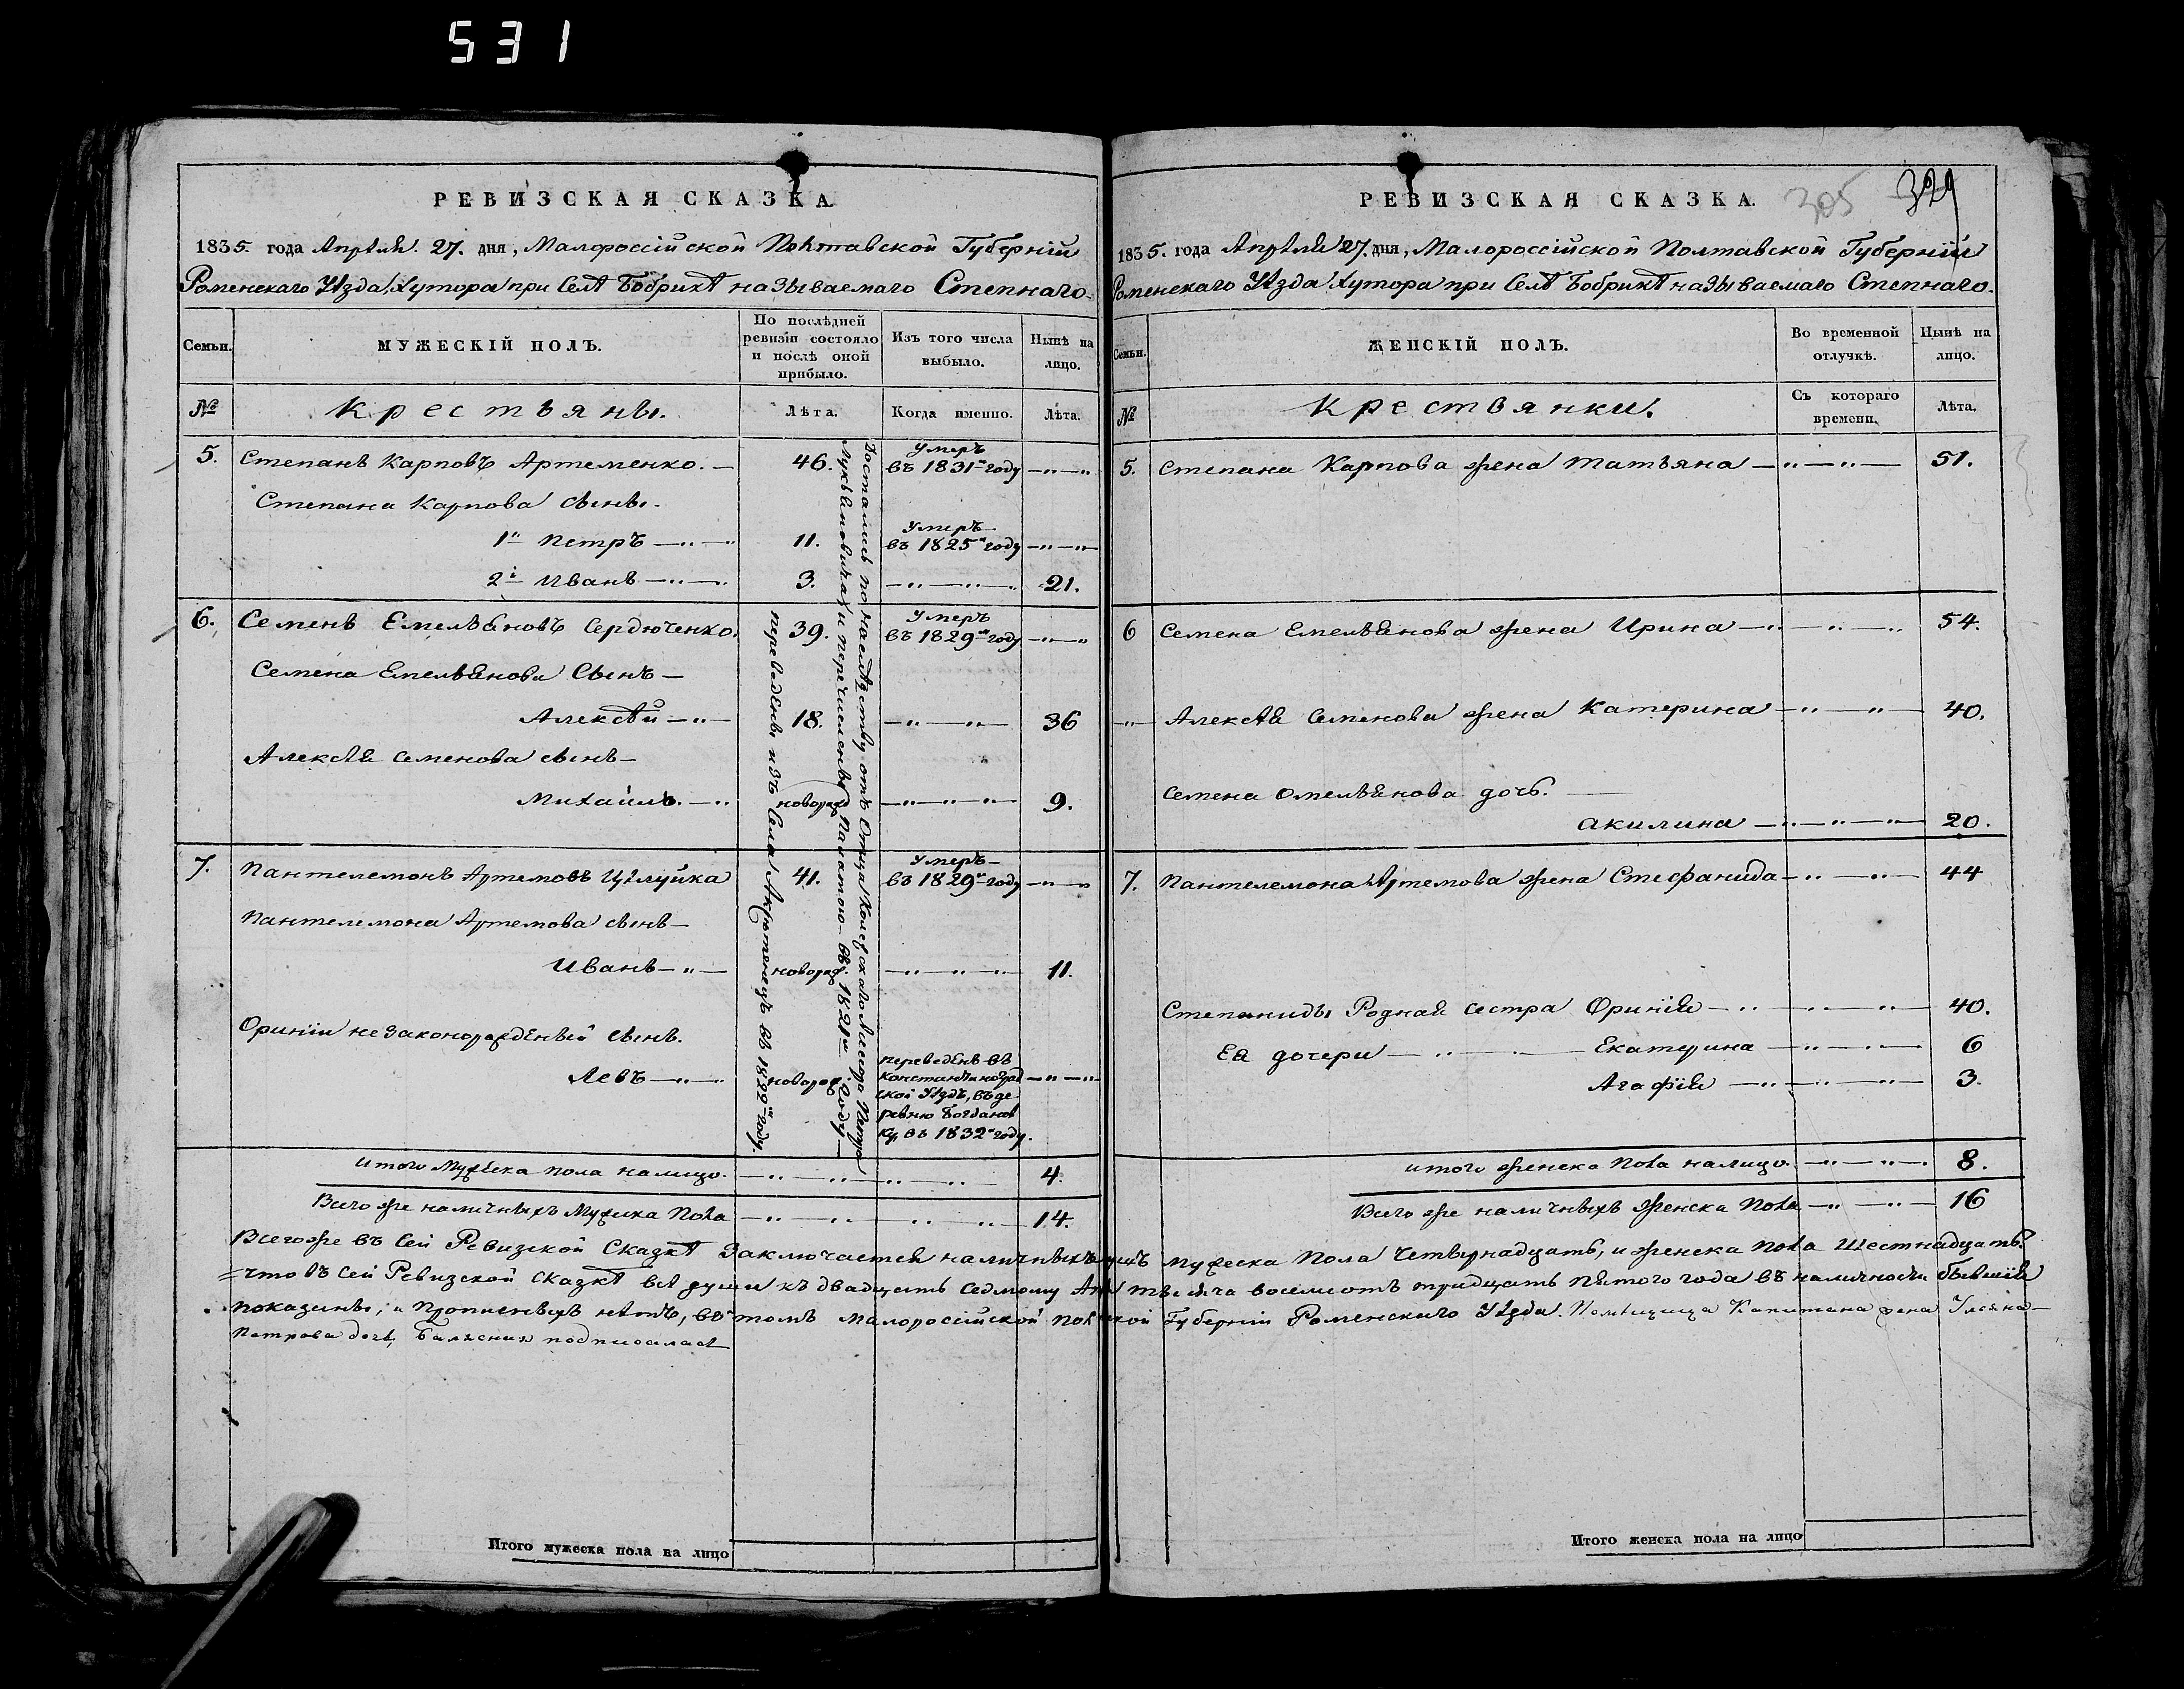 531
РЕВИЗСКАЯ СКАЗКА
1835. года Апрѣля. 27. дня, Малороссійской Полтавской Губерніи
Роменскаго Уѣзда, Хутора при Селѣ Бобрикѣ называемаго Степнаго.
Семьи.
МУЖЕСКІЙ ПОЛЪ.
По послѣдней ревизіи состояло и послѣ оной прибыло.
Изъ того числа выбыло.
Нынѣ на лицо.
№
Крестьяны.
Лѣта.
Когда именно.
Лѣта.
5. Степанъ Карповъ Артеменко. 46. Умеръ въ 1831 году
Степана Карпова сыны.
1й Петръ 11. Умеръ въ 1825 году
2й Иванъ 3. 21.
6. Семенъ Емельяновъ Сердюченко. 39. Умеръ въ 1829 году
Семена Емельянова Сынъ
Алексѣй 18. 36
Алексѣя Семенова сынъ
Михаилъ. новорож 9.
7. Пантелемонъ Артемовъ Цѣлуйка 41. Умеръ въ 1829 году
Пантелемона Артемова сынъ
Иванъ новорож 11.
Ориніи незаконорожденый сынъ.
Левъ новорож. переведенъ въ
Константиноград
ской Уѣздъ, въ де
ревню Богданов
ку, въ 1832 году.
Достались по наслѣдству отъ Отца
и перечислены Палатою въ 1821м Году
переведены изъ Села въ 1822 году.
итого Мужеска пола налицо. 4.
Всего же наличныхъ Мужска Пола 14.
РЕВИЗСКАЯ СКАЗКА.
305
329
1835. года Апрѣля 27. дня, Малороссійской Полтавской Губерніи
Роменскаго Уѣзда Хутора при Селѣ Бобрикѣ называемаго Степнаго.
Семьи.
ЖЕНСКІЙ ПОЛЪ.
Во временной отлучкѣ.
Нынѣ на лицо.
№
Крестьянки.
Съ котораго времени.
Лѣта.
5. Степана Карпова жена Татьяна 51.
6 Семена Емельянова жена Ирина 54.
Алексѣя Семенова жена Катерина 40.
Семена Омельянова дочь.
Акилина 20.
7. Пантелемона Артемова жена Стефанида 44
Степаниды Родная сестра Ориния 40.
Ея дочери Екатерина 6
Агафія 3.
итого женска Пола налицо. 8.
Всего же наличныхъ Женска Пола 16
Всего же въ Сей Ревизской Сказкѣ Заключается наличныхъ душъ мужеска Пола Четырнадцать, и женска Пола Шестнадцать.
что въ сей Ревизской Сказкѣ всѣ души къ двадцать седмому тысяча восемсотъ тридцать пятого года въ наличности бывшія
показаны, и прописныхъ нѣтъ, въ томъ Малороссійской Губерніи Роменскаго Уѣзда. Помѣщица Капитана жена Ульяна
Петрова дочь, подписалась
Итого мужеска пола на лицо
Итого женска пола на лицо